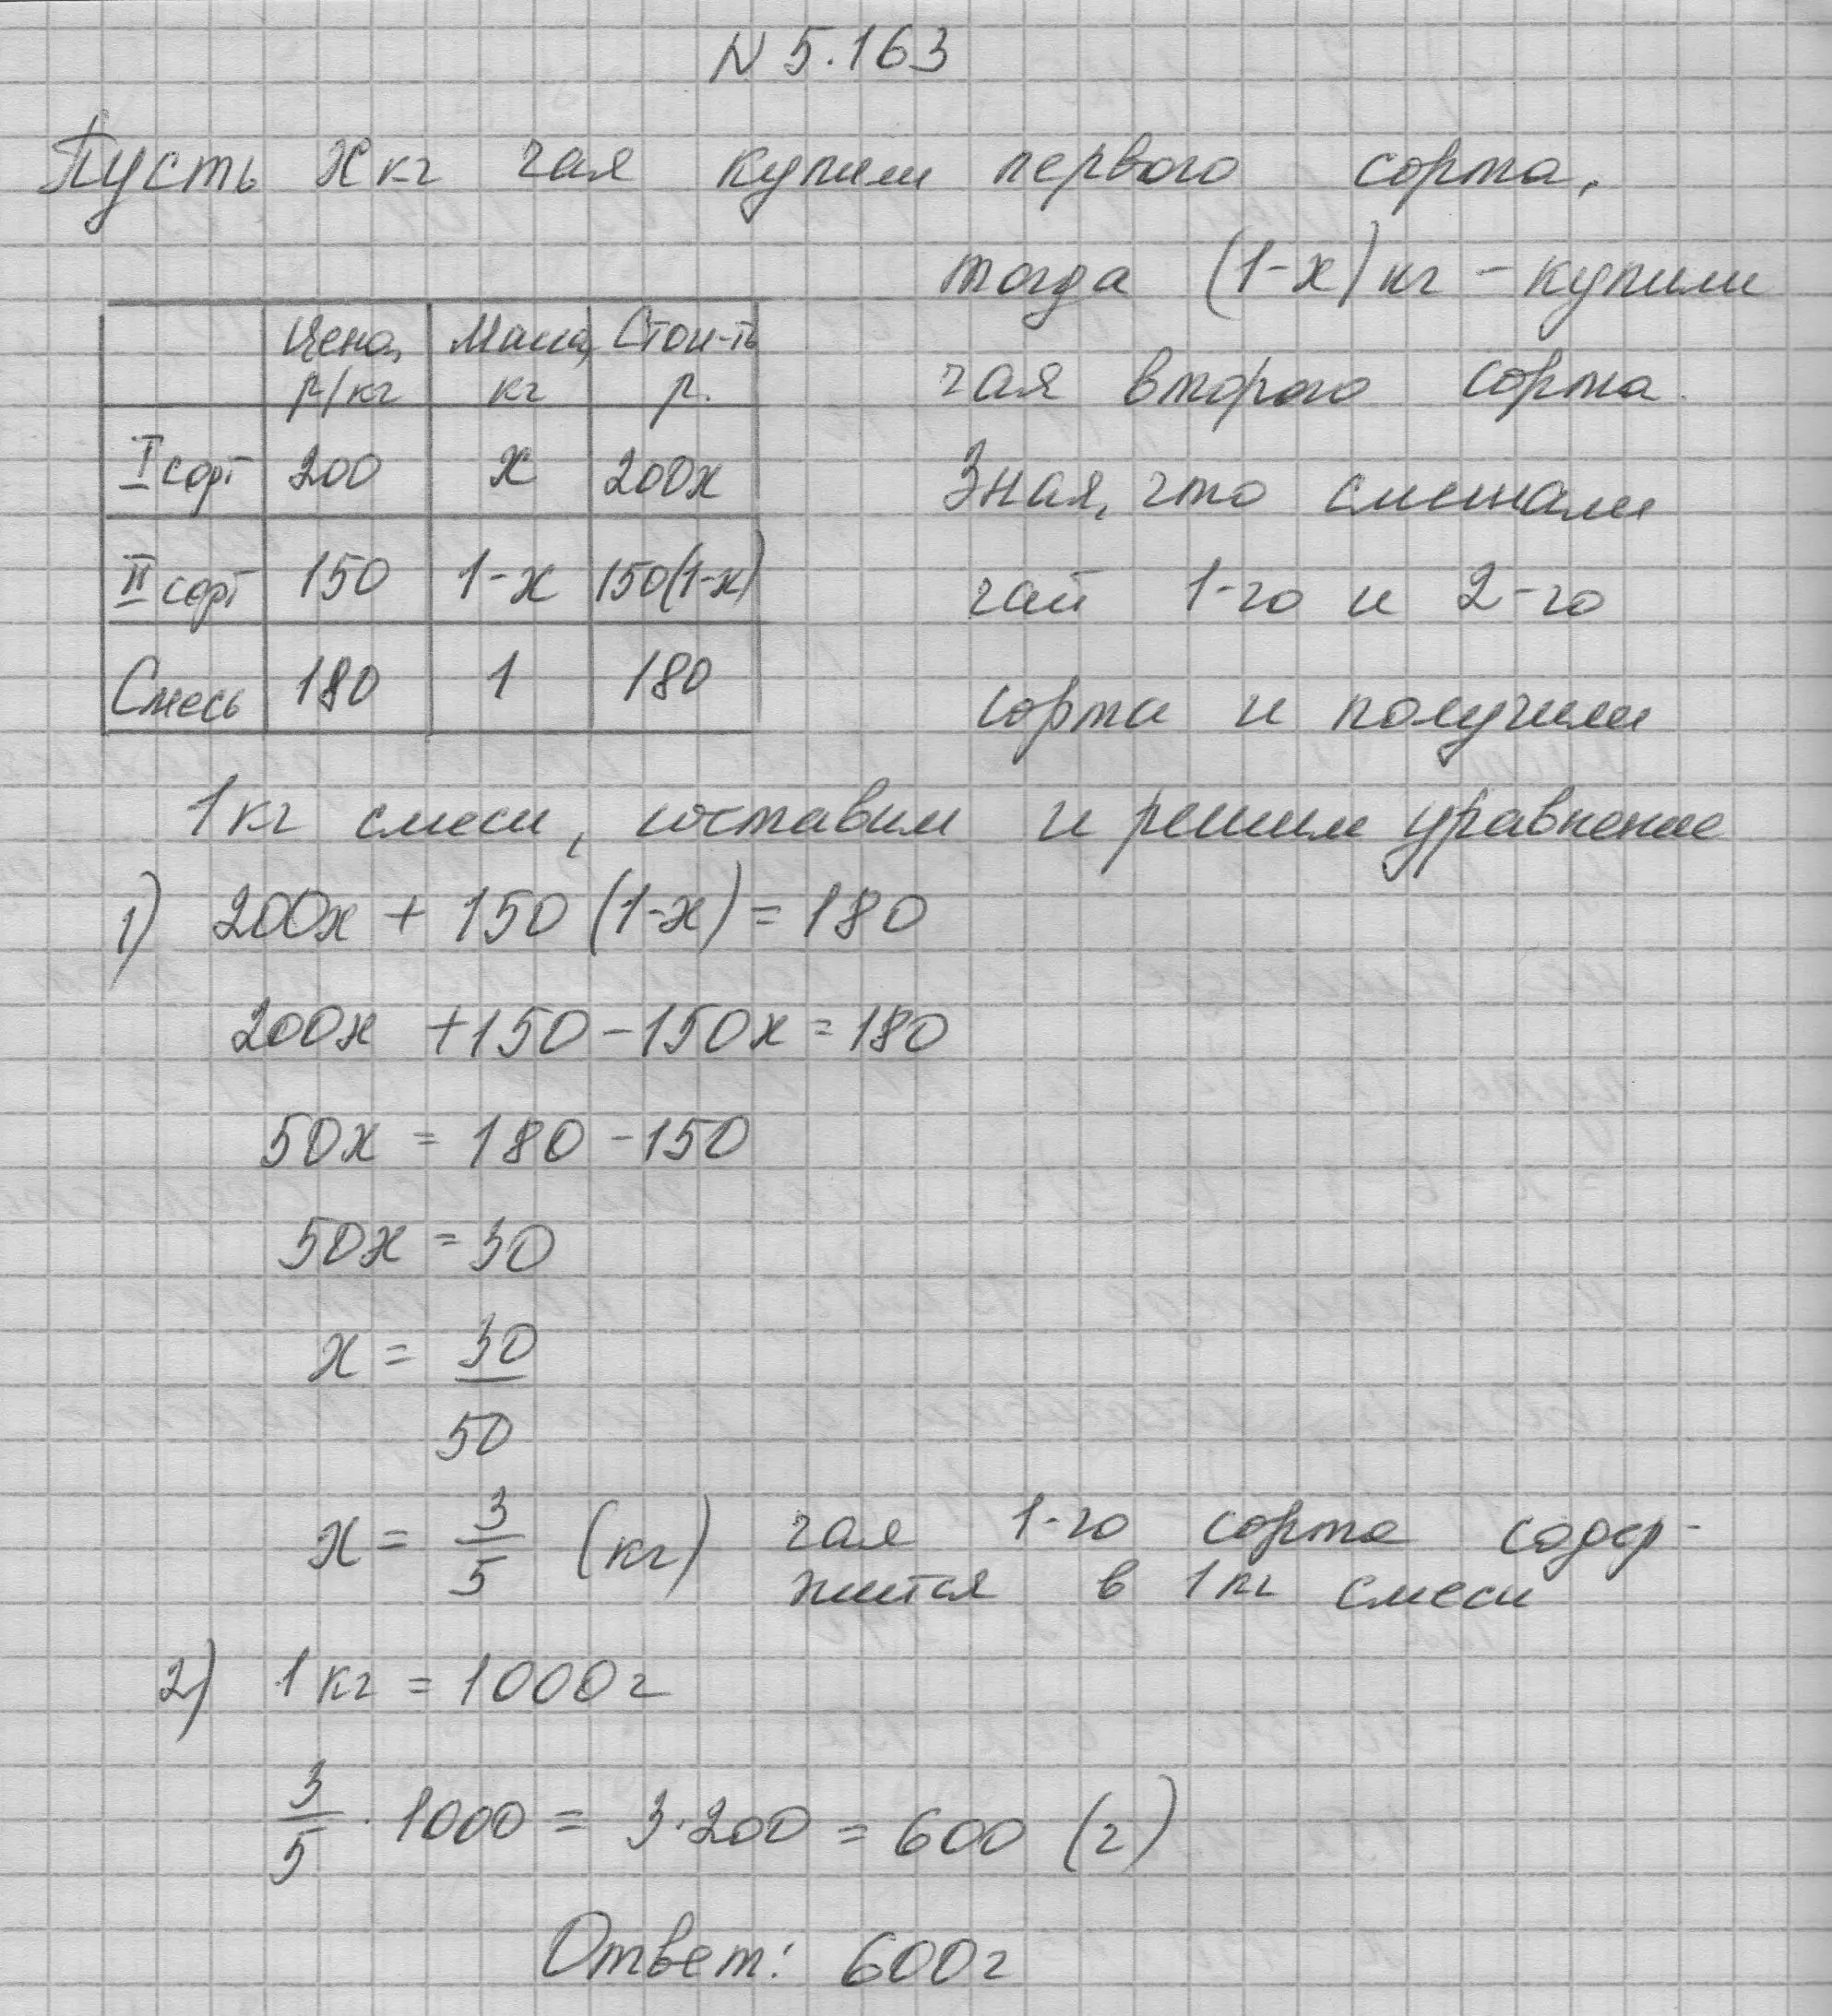 N 5.163
Пусть x кг чая купили первого сорта,
тогда (1-x) кг - купили
чая второго сорта.
Зная, что смешали
чай 1-го и 2-го
сорта и получили
Цена, р/кг | Масса, кг | Стои-ть р.
I сорт | 200 | x | 200x
II сорт | 150 | 1-x | 150(1-x)
Смесь | 180 | 1 | 180
1 кг смеси, составим и решим уравнение
1) 200x + 150 (1-x) = 180
200x +150-150x=180
50x = 180-150
50x = 30
x = 30/50
x = 3/5 (кг) чая 1-го сорта содер-
жится в 1 кг смеси
2) 1 кг = 1000 г
3/5 · 1000 = 3·200 = 600 (г)
Ответ: 600 г